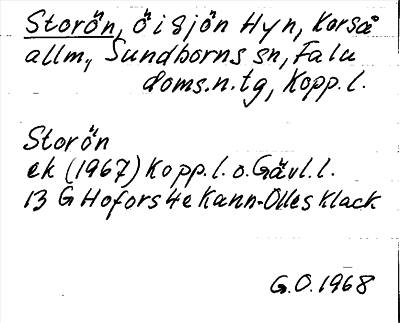 Storön, ö i sjön Hyn, Korså
allm., Sundborns sn, Falu
doms.n.tg, Kopp.l.
Storön
ek (1967) Kopp.l. o. Gävl.l.
13 G Hofors 4e Kann-Olles Klack
G.O. 1968